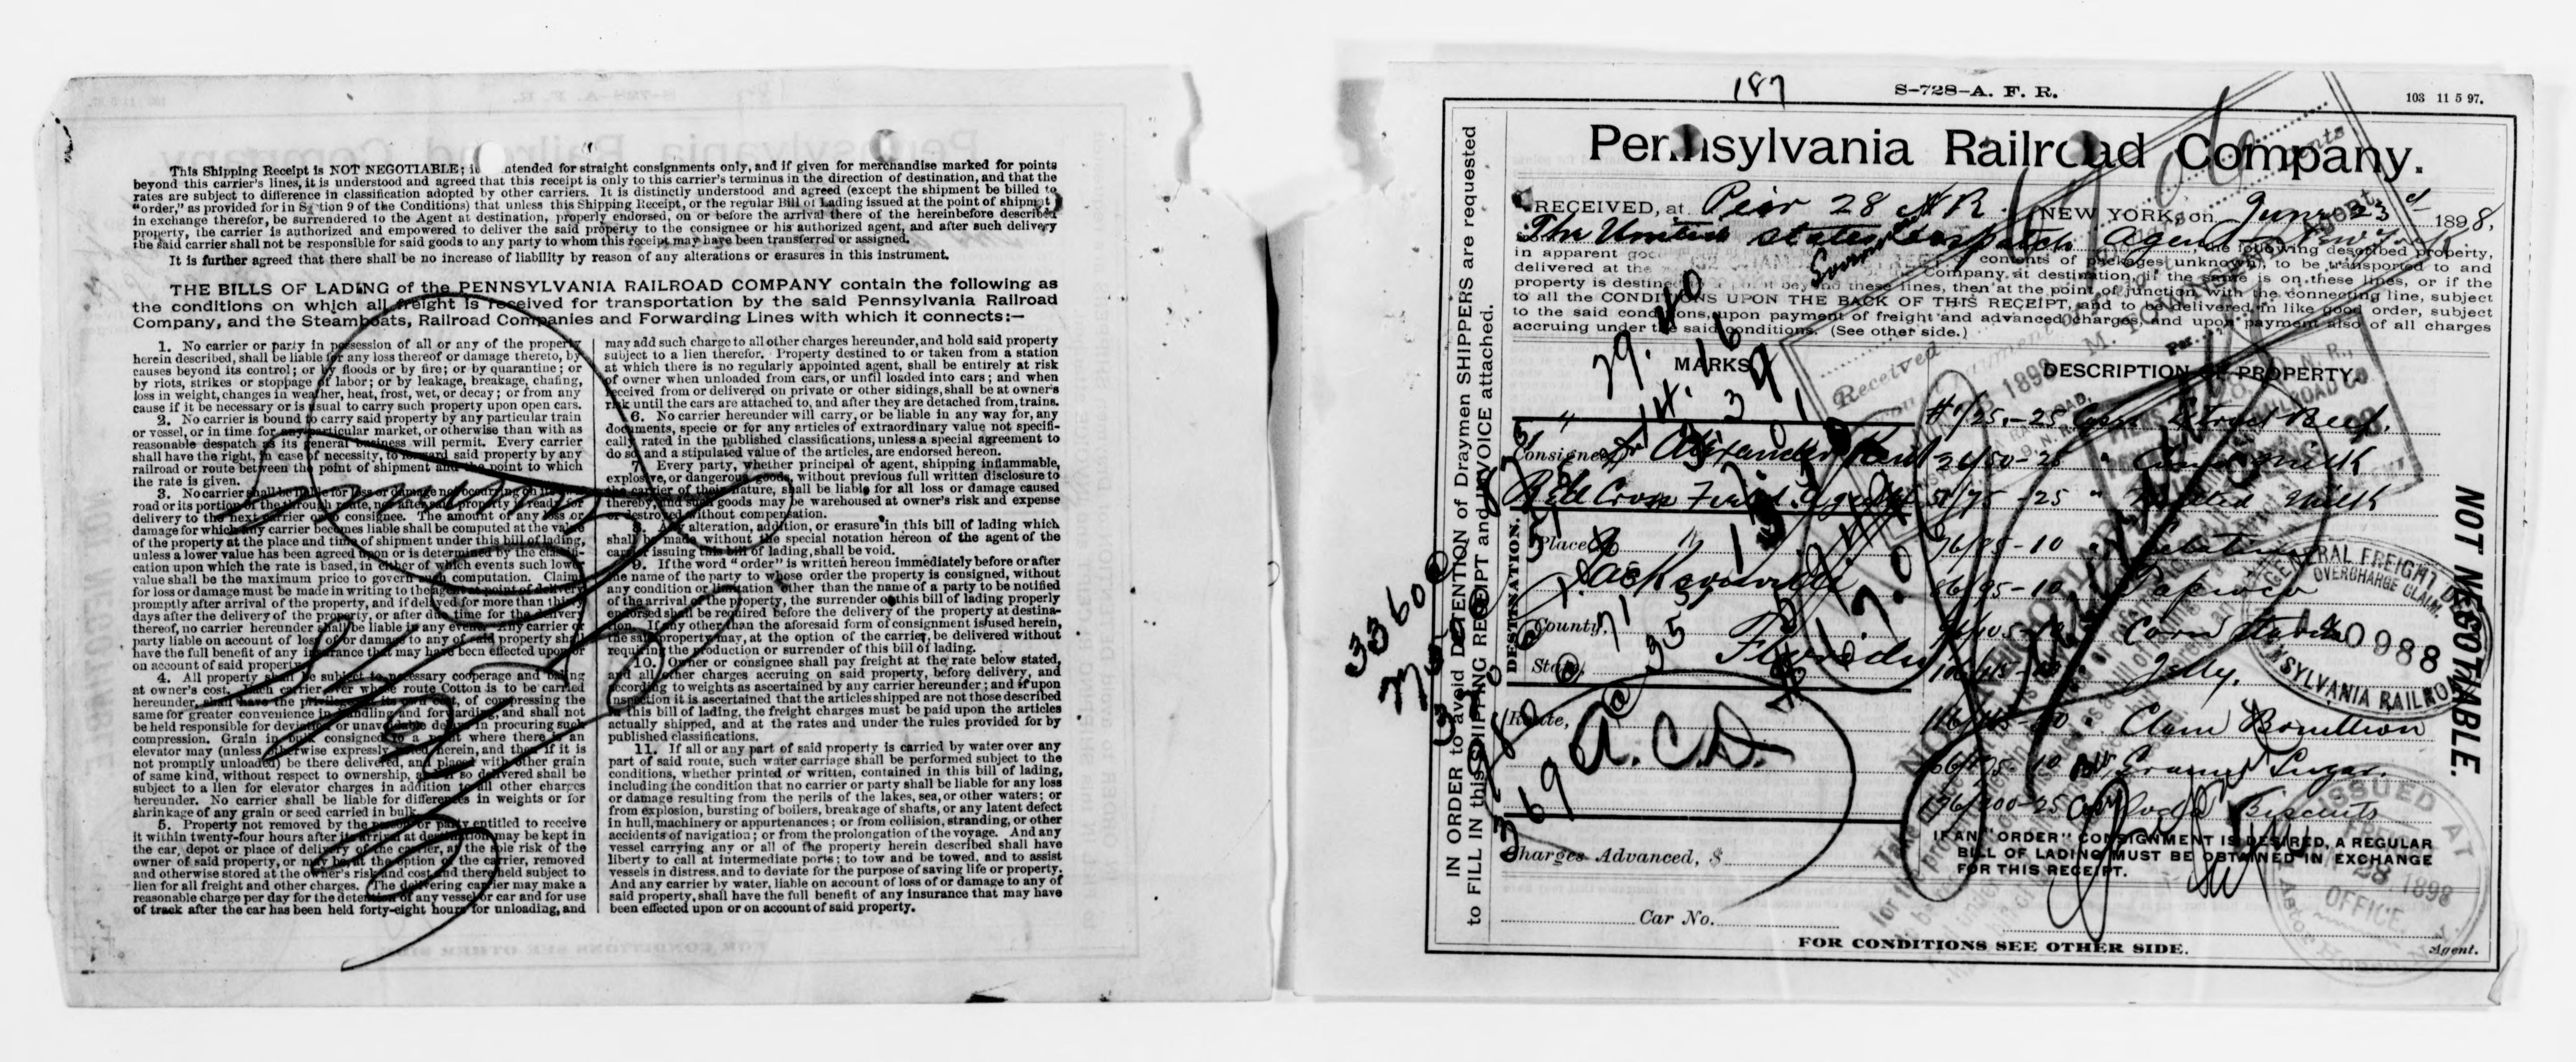 This Shipping Receipt is NOT NEGOTIABLE; i ntended for straight consignments only, and if given for merchandise marked for points
beyond this carrier's lines, it is understood and agreed that this receipt is only to this carrier's terminus in the direction of destination, and that the
rates are subject to difference in classification adopted by other carriers. It is distinctly understood and agreed (except the shipment be billed to
"order," as provided for in S tion 9 of the Conditions) that unless this Shipping Receipt, or the regular Bill of Lading issued at the point of shipm t
in exchange therefor, be surrendered to the Agent at destination, properly endorsed, on or before the arrival there of the hereinbefore described
property, the carrier is authorized and empowered to deliver the said property to the consignee or his authorized agent, and after such delivery
the said carrier shall not be responsible for said goods to any party to whom this receipt may have been transferred or assigned.
It is further agreed that there shall be no increase of liability by reason of any alterations or erasures in this instrument.
THE BILLS OF LADING of the PENNSYLVANIA RAILROAD COMPANY contain the following as
the conditions on which all freight is received for transportation by the said Pennsylvania Railroad
Company, and the Steamboats, Railroad Companies and Forwarding Lines with which it connects:—
1. No carrier or party in possession of all or any of the property
herein described, shall be liable for any loss thereof or damage thereto, by
causes beyond its control; or by floods or by fire; or by quarantine; or
by riots, strikes or stoppage of labor; or by leakage, breakage, chafing,
loss in weight, changes in weather, heat, frost, wet, or decay; or from any
cause if it be necessary or is usual to carry such property upon open cars.
2. No carrier is bound to carry said property by any particular train
or vessel, or in time for any particular market, or otherwise than with as
reasonable despatch as its general business will permit. Every carrier
shall have the right, in case of necessity, to forward said property by any
railroad or route between the point of shipment and the point to which
the rate is given.
3. No carrier shall be liable for loss or damage not occurring on its own
road or its portion of the through route, nor after said property is ready for
delivery to the next carrier or to consignee. The amount of any loss or
damage for which any carrier becomes liable shall be computed at the value
of the property at the place and time of shipment under this bill of lading,
unless a lower value has been agreed upon or is determined by the classifi-
cation upon which the rate is based, in either of which events such lower
value shall be the maximum price to govern such computation. Claims
for loss or damage must be made in writing to the agent at point of delivery
promptly after arrival of the property, and if delayed for more than thirty
days after the delivery of the property, or after due time for the delivery
thereof, no carrier hereunder shall be liable in any event. Any carrier or
party liable on account of loss of or damage to any of said property shall
have the full benefit of any insurance that may have been effected upon or
on account of said property.
4. All property shall be subject to necessary cooperage and baling
at owner's cost. Each carrier over whose route Cotton is to be carried
hereunder, shall have the privilege, at its own cost, of compressing the
same for greater convenience in handling and forwarding, and shall not
be held responsible for deviation or unavoidable delays in procuring such
compression. Grain in bulk consigned to a point where there is an
elevator may (unless otherwise expressly noted herein, and then if it is
not promptly unloaded) be there delivered, and placed with other grain
of same kind, without respect to ownership, and if so delivered shall be
subject to a lien for elevator charges in addition to all other charges
hereunder. No carrier shall be liable for differences in weights or for
shrinkage of any grain or seed carried in bulk.
5. Property not removed by the person or party entitled to receive
it within twenty-four hours after its arrival at destination may be kept in
the car, depot or place of delivery of the carrier, at the sole risk of the
owner of said property, or may be, at the option of the carrier, removed
and otherwise stored at the owner's risk and cost and there held subject to
lien for all freight and other charges. The delivering carrier may make a
reasonable charge per day for the detention of any vessel or car and for use
of track after the car has been held forty-eight hours for unloading, and
may add such charge to all other charges hereunder, and hold said property
subject to a lien therefor. Property destined to or taken from a station
at which there is no regularly appointed agent, shall be entirely at risk
of owner when unloaded from cars, or until loaded into cars; and when
received from or delivered on private or other sidings, shall be at owner's
risk until the cars are attached to, and after they are detached from, trains.
6. No carrier hereunder will carry, or be liable in any way for, any
documents, specie or for any articles of extraordinary value not specifi-
cally rated in the published classifications, unless a special agreement to
do so, and a stipulated value of the articles, are endorsed hereon.
7. Every party, whether principal or agent, shipping inflammable,
explosive, or dangerous goods, without previous full written disclosure to
the carrier of their nature, shall be liable for all loss or damage caused
thereby, and such goods may be warehoused at owner's risk and expense
or destroyed without compensation.
8. Any alteration, addition, or erasure in this bill of lading which
shall be made without the special notation hereon of the agent of the
carrier issuing this bill of lading, shall be void.
9. If the word "order" is written hereon immediately before or after
the name of the party to whose order the property is consigned, without
any condition or limitation other than the name of a party to be notified
of the arrival of the property, the surrender of this bill of lading properly
endorsed shall be required before the delivery of the property at destina-
tion. If any other than the aforesaid form of consignment is used herein,
the said property may, at the option of the carrier, be delivered without
requiring the production or surrender of this bill of lading.
10. Owner or consignee shall pay freight at the rate below stated,
and all other charges accruing on said property, before delivery, and
according to weights as ascertained by any carrier hereunder; and if upon
inspection it is ascertained that the articles shipped are not those described
in this bill of lading, the freight charges must be paid upon the articles
actually shipped, and at the rates and under the rules provided for by
published classifications.
11. If all or any part of said property is carried by water over any
part of said route, such water carriage shall be performed subject to the
conditions, whether printed or written, contained in this bill of lading,
including the condition that no carrier or party shall be liable for any loss
or damage resulting from the perils of the lakes, sea, or other waters; or
from explosion, bursting of boilers, breakage of shafts, or any latent defect
in hull, machinery or appurtenances; or from collision, stranding, or other
accidents of navigation; or from the prolongation of the voyage. And any
vessel carrying any or all of the property herein described shall have
liberty to call at intermediate ports; to tow and be towed, and to assist
vessels in distress, and to deviate for the purpose of saving life or property.
And any carrier by water, liable on account of loss of or damage to any of
said property, shall have the full benefit of any insurance that may have
been effected upon or on account of said property.
187
S-728-A. F. R.
103 11 5 97.
Pennsylvania Railroad Company.
RECEIVED, at Pier 28 N R NEW YORK, on June 23d 1898,
The United States Despatch Agent New York
in apparent goo contents of packages unknown, to be transported to and
delivered at the Company, at destination, if the same is on these lines, or if the
property is destined to a point beyond these lines, then at the point of junction with the connecting line, subject
to all the CONDITIONS UPON THE BACK OF THIS RECEIPT, and to be delivered in like good order, subject
to the said conditions, upon payment of freight and advanced charges, and upon payment also of all charges
accruing under the said conditions. (See other side.)
IN ORDER to avoid DETENTION of Draymen SHIPPERS are requested
to FILL IN this SHIPPING RECEIPT and INVOICE attached.
MARKS
DESCRIPTION OF PROPERTY.
#1/25-25 Beef.
Consignee, Dr Alexander Kent 26/50-25 " Milk
Red Cross Field Agent 51/75-25 " Malted Milk
DESTINATION.
Place, 76/85-10 " Gelatine
Jacksonville 86/95-10 " Tapioca
County, Corn Starch
State, Florida Jelly.
Route, A.C.L. Clam Bouillion
Sugar.
176/200-25 Biscuits
Charges Advanced, $
IF AN "ORDER" CONSIGNMENT IS DESIRED, A REGULAR
BILL OF LADING MUST BE OBTAINED IN EXCHANGE
FOR THIS RECEIPT.
Car No.
Agent.
FOR CONDITIONS SEE OTHER SIDE.
NOT NEGOTIABLE.
GENERAL FREIGHT DEPT
OVERCHARGE CLAIM.
140988
PENNSYLVANIA RAILROAD
ISSUED AT
FREIGHT
28 1898
OFFICE.
3360